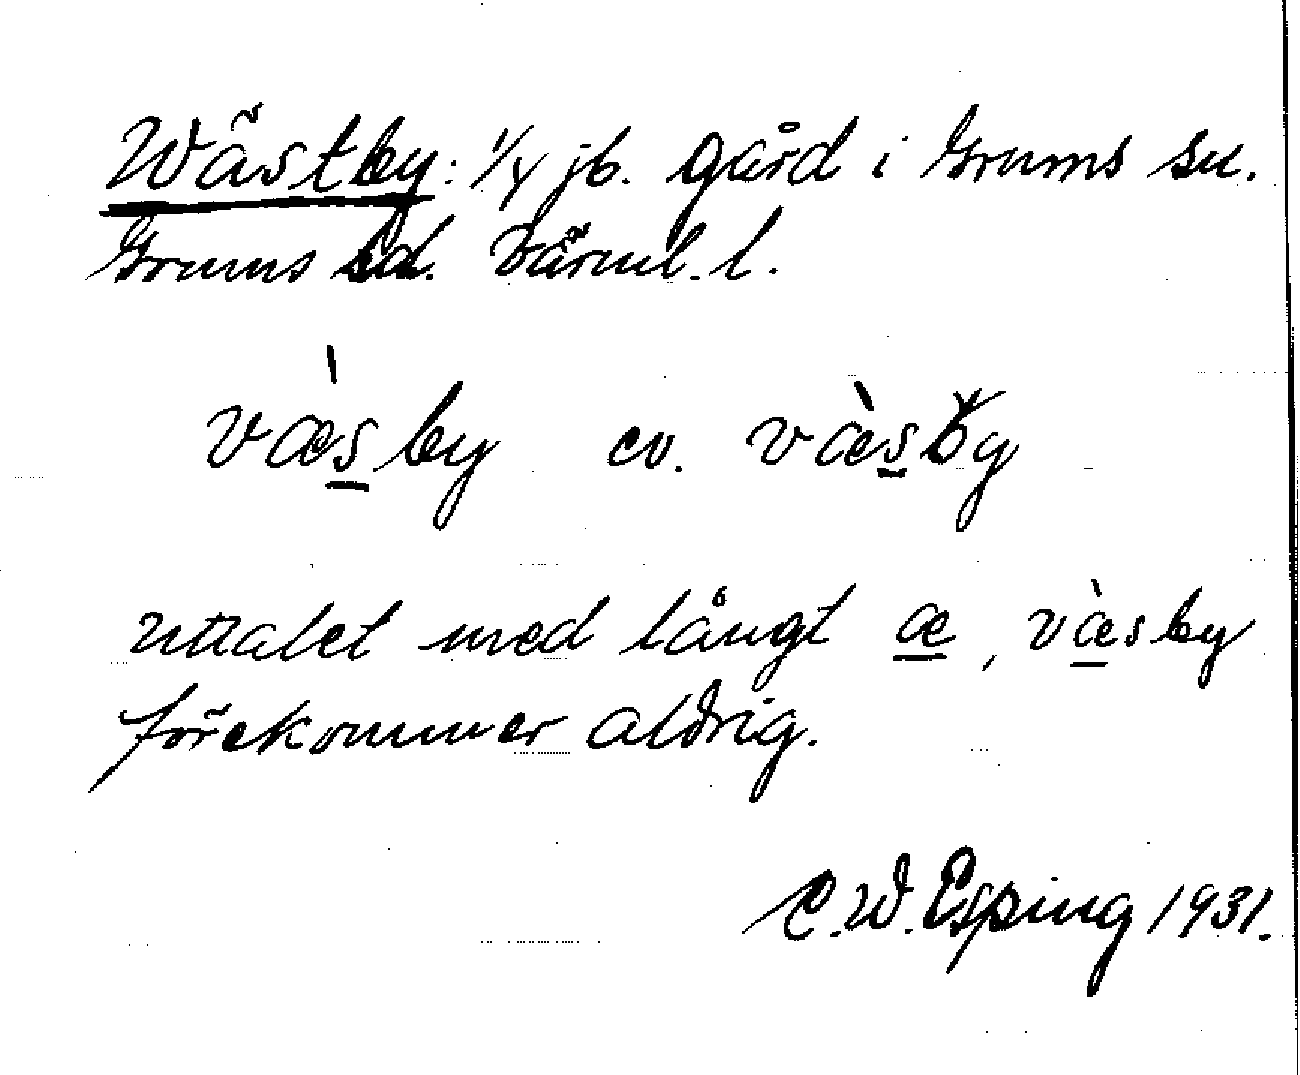 Wästby: 1/4 jb. gård i Grums sn.
Grums hd. Värml. l.
væ̀s̲by ev. væ̀s̲by
uttalet med långt æ̲, væ̲̀sby
förekommer aldrig.
C.W. Esping 1931.